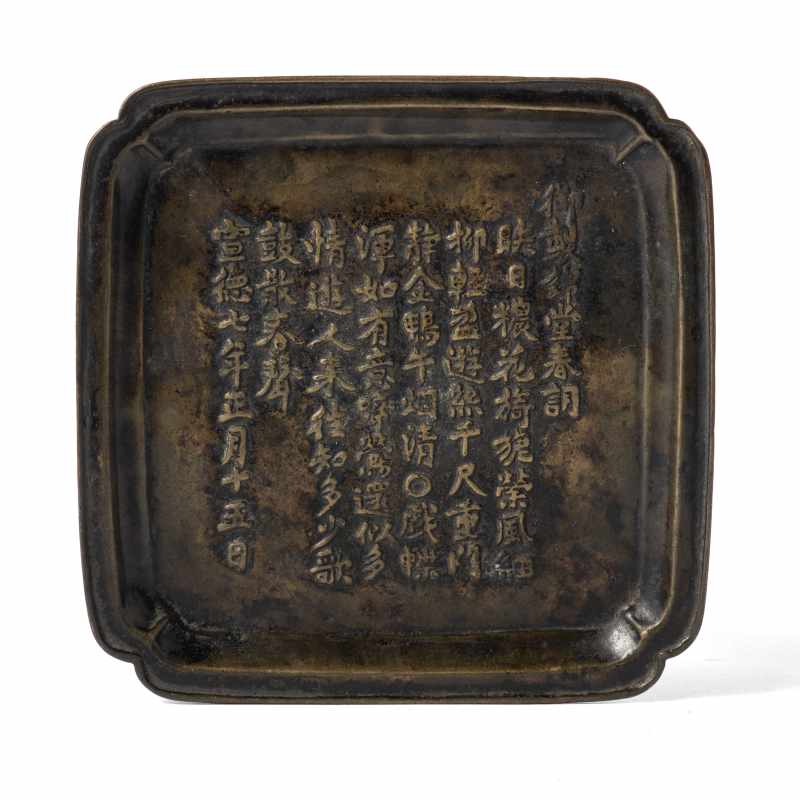 御製錦堂春詞
映日穠花旖旎縈風細
柳輕盈遊絲千尺重門
靜金鴨午烟清〇戲蝶
渾如有意啼鶯還似多
情遊人来往知多少歌
鼓散春聲
宣德七年正月十五日